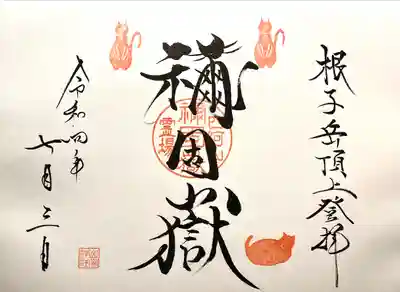 根子岳頂上登拝
禰固嶽
霊場
令和四年
七月三日